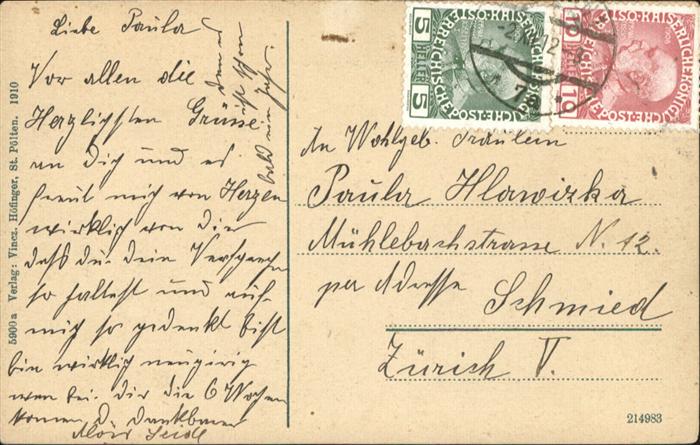 Liebe Paula
Vor allen die
Herzlichsten Grüsse
an Dich und es
freut mich von Herzen
wirklich von Dir
daß du dein Versprechen
so haltest und auf
mich so gedenkt bist
bin wirklich neugirig
wen bei dir die 6 Wochen
kommen D. dankbarer
Alois Seidl
den es
ist schon
bald ein Jahr.
5900 a Verlag: Vincz. Höfinger, St. Pölten. 1910
5 HELLER 5
KAISERLICHE KÖNIGLICHE ÖSTERREICHISCHE POST
10 HELLER 10
KAISERLICHE KÖNIGLICHE ÖSTERREICHISCHE POST
An Wohlgeb. Fräulein
Paula Hlawizka
Mühlebachstrasse N. 12.
per Adresse
Schmied
Zürich V.
214983